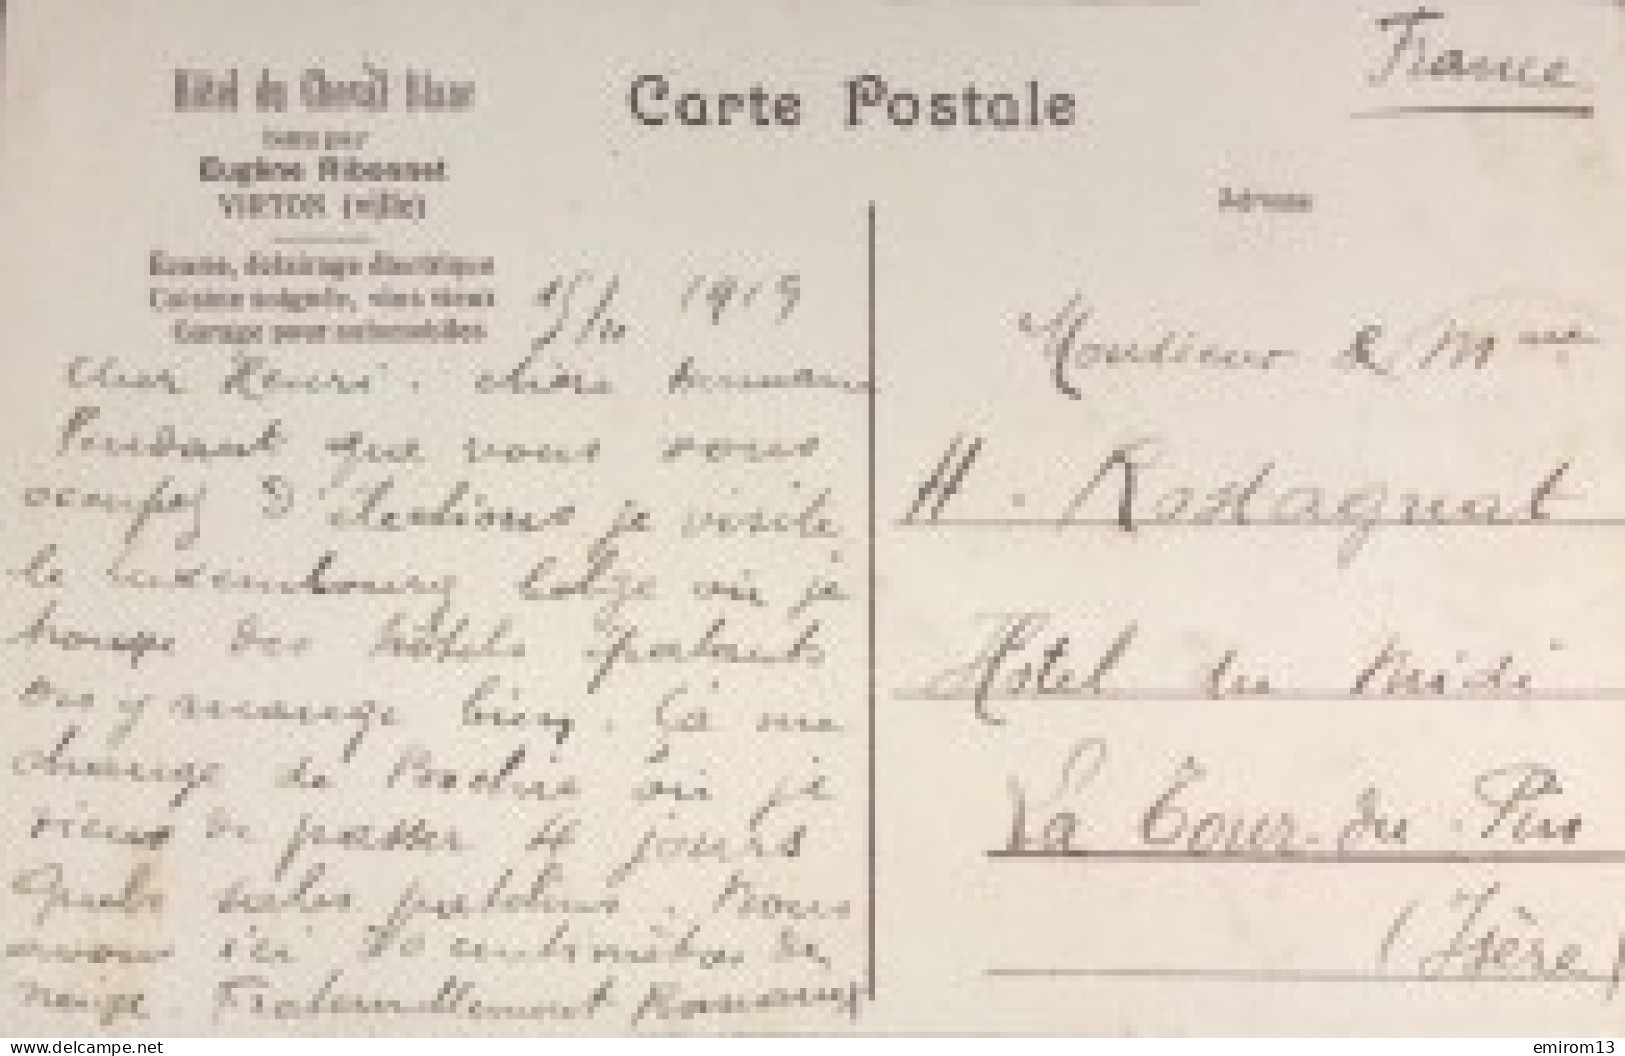 France
Hôtel du Cheval Blanc
tenu par
Eugène Ribonnet
VIRTON (ville)
Carte Postale
Adresse
Écurie, éclairage électrique
Cuisine soignée, vins vieux
Garage pour automobiles
15/11 1919
Cher Henri. chère
Pendant que vous vous
occupez d'élections je visite
le Luxembourg belge où je
trouve des hôtels épatants
on y mange bien. Ça me
change de où je
viens de passer 4 jours
Quels sales patelins. Nous
avons ici 30 centimètres de
neige. Fraternellement
Monsieur & Mme
H. Rostagnat
Hôtel du Midi
La Tour-du-Pin
(Isère)
delcampe.net
emirom13